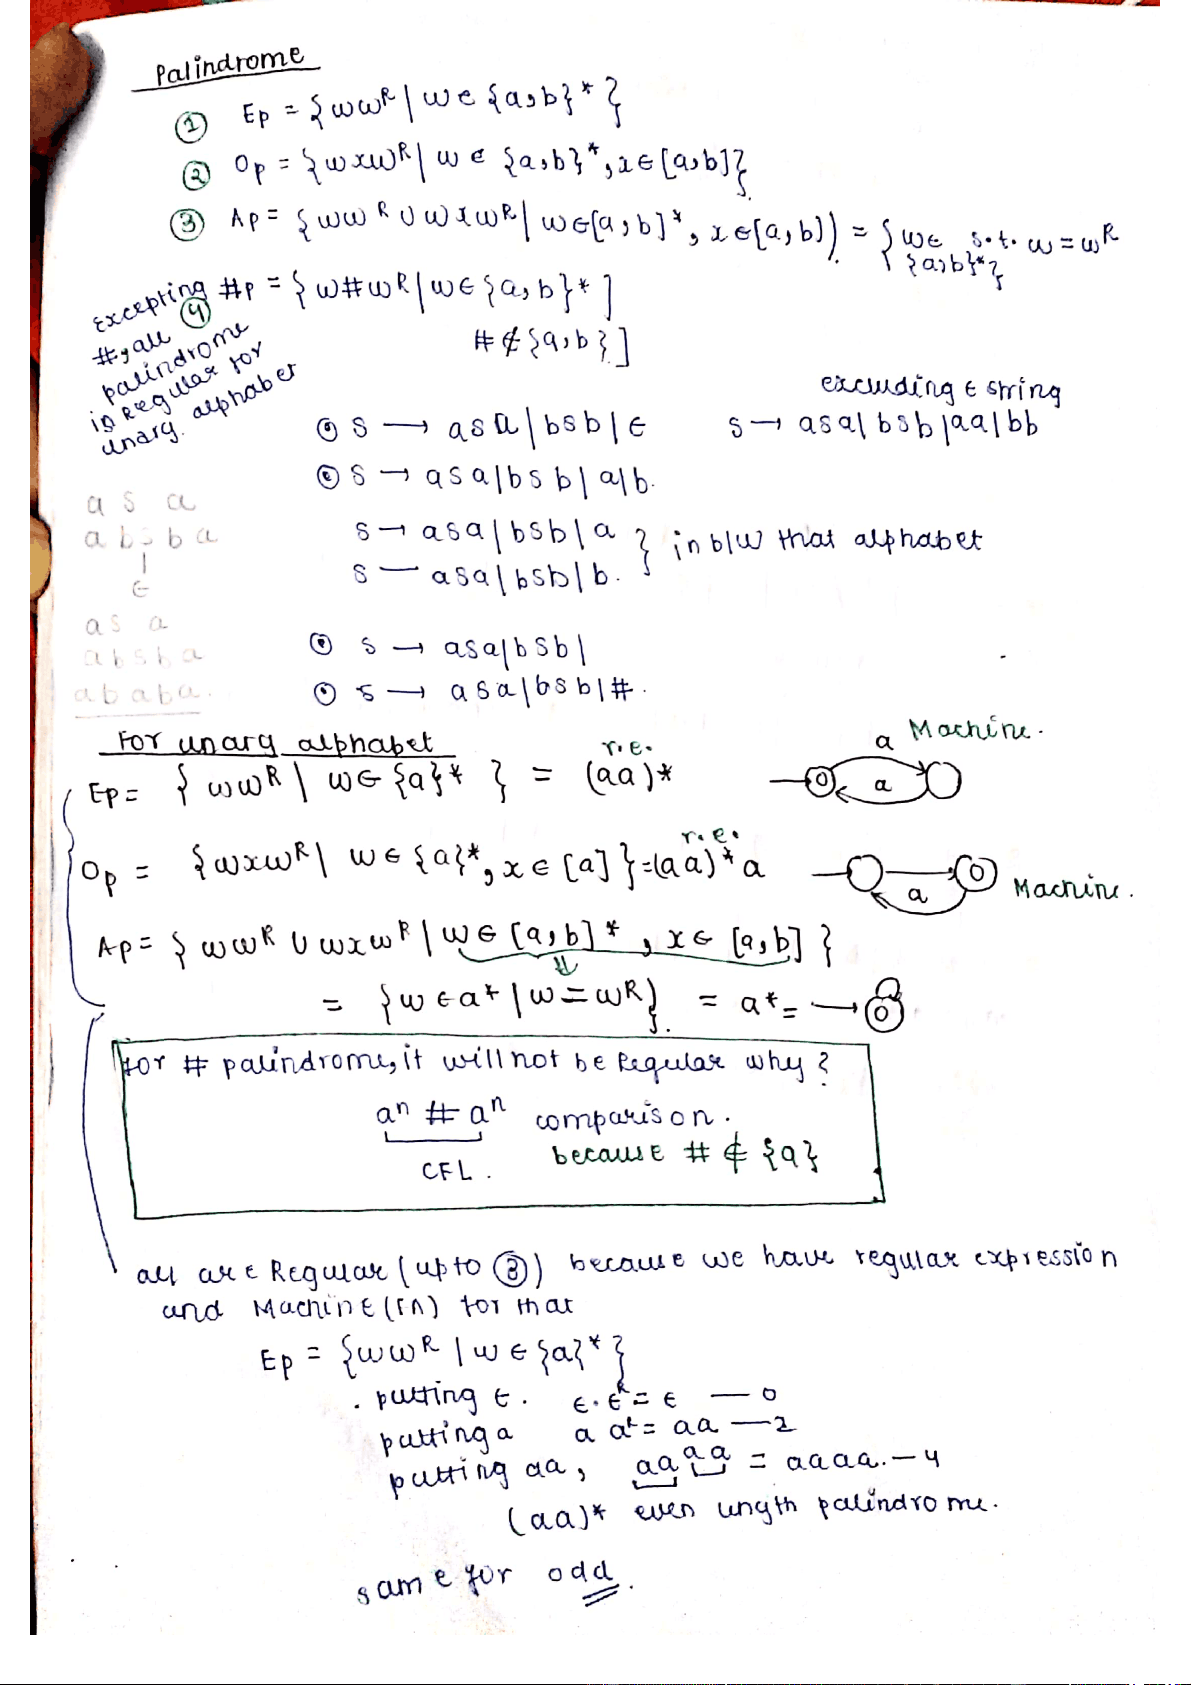 Palindrome
① Ep = {wwᴿ | w ∈ {a,b}* }
② Op = {wxwᴿ | w ∈ {a,b}*, x ∈ [a,b]}
③ Ap = { wwᴿ ∪ wxwᴿ | w∈[a,b]*, x∈[a,b]} = {w∈ {a,b}* s.t. w = wᴿ}
④ #p = {w#wᴿ | w∈{a,b}* ]
# ∉ {a,b}]
Excepting
#, all
palindrome
is Regular for
unary. alphabet
excluding ∈ string
⊙ S → asa | bsb | ∈ S → asa | bsb | aa | bb
⊙ S → asa | bsb | a | b.
S → asa | bsb | a } in b/w that alphabet
S — asa | bsb | b.
a s a
a b b a
|
∈
as a
a b s b a
ab aba.
⊙ S → asa | bsb |
⊙ S → asa | bsb | #.
For unary alphabet
Ep = { wwᴿ | w∈ {a}* } = (aa)* r.e.
Machine.
a
a
Op = {wxwᴿ | w∈{a}*, x∈[a]} = (aa)*a r.e.
a
Machine.
Ap = { wwᴿ ∪ wxwᴿ | w∈[a,b]*, x∈[a,b] }
⇓
= {w∈a* | w = wᴿ} = a* =
for # palindrome, it will not be Regular why?
aⁿ # aⁿ comparison.
CFL. because # ∉ {a}
all are Regular (upto ③) because we have regular expression
and Machine (FA) for that
Ep = {wwᴿ | w∈{a}*}
. putting ∈. ∈.∈ᴿ = ∈ — 0
putting a a aᴿ = aa — 2
putting aa, aa aa = aaaa. — 4
(aa)* even length palindrome.
same for odd.